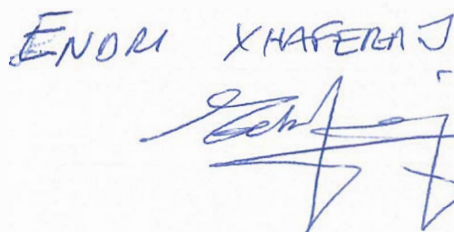 ENDRI XHAFERAJ